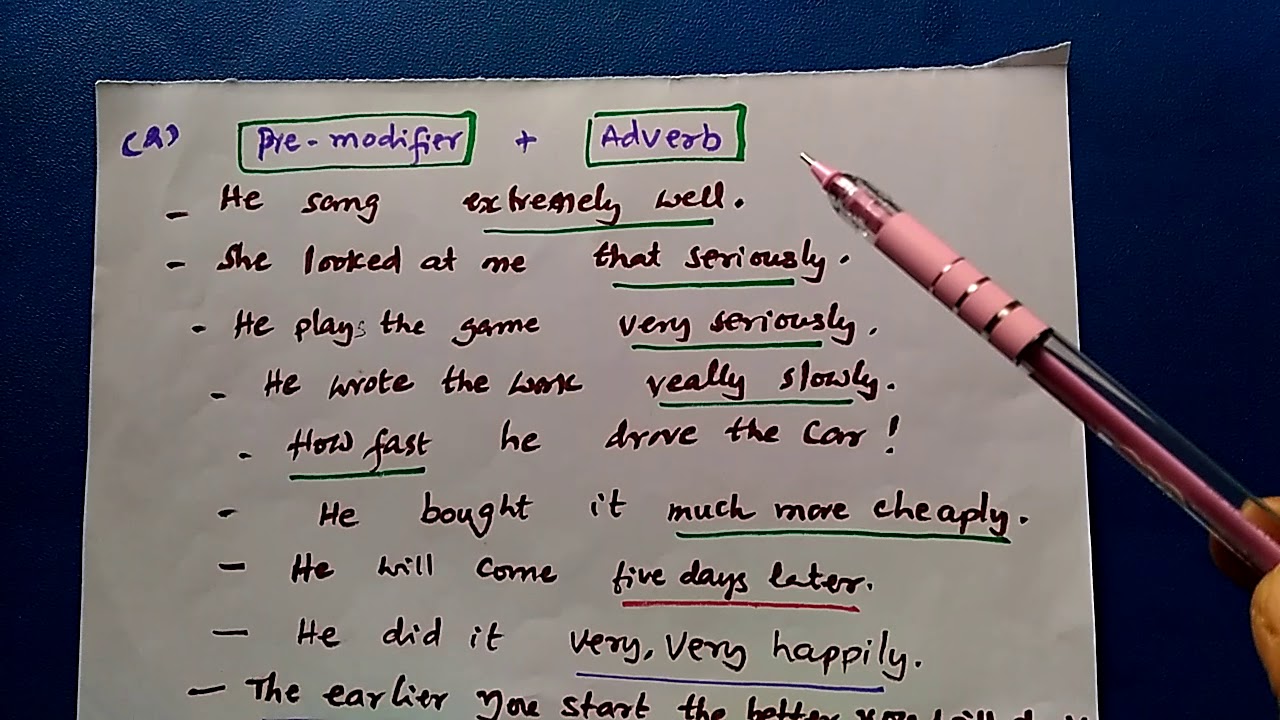 (a) Pre-modifier + Adverb
- He sang extremely well.
- She looked at me that seriously.
- He plays the game very seriously.
- He wrote the work really slowly.
- How fast he drove the car!
- He bought it much more cheaply.
- He will come five days later.
- He did it very, very happily.
- The earlier you start the better you will